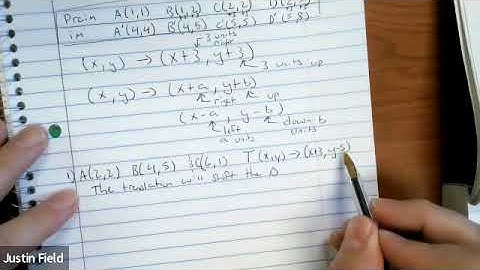 Prein A(1,1) B(1,2) C(2,2) D(2,
im A'(4,4) B'(4,5) C'(5,5) D'(5,8)
3 units
right
(x,y) → (x+3, y+3)
3 units up
(x,y) → (x+a, y+b)
right up
(x-a, y-b)
left down b
a units units
1) A(2,2) B(4,5) C(6,1) T(x,y) → (x+3, y-5)
The translation will shift the Δ
Justin Field